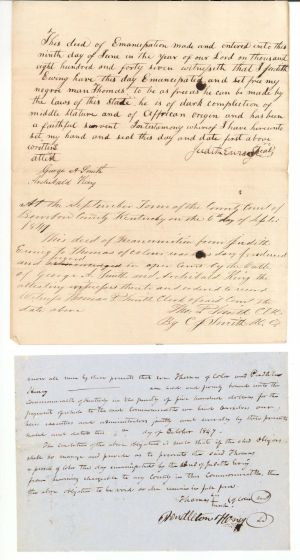 This deed of Emancipation made and entered into this
ninth day of June in the year of our Lord on thousand
eight hundred and forty seven witnesseth that I Judith
Ewing have this day Emancipated and set free my
negroe man Thomas to be as free as he can be made by
the laws of this State he is of dark complection of
middle stature and of Affrican origin and has been
a faithful servent In testimony whereof I have hereunto
set my hand and seal this day and date first above
written Judith Ewing (seal)
attest
George A Smith
Archibald King
At the September Term of the County Court of
Bourbon County Kentucky on the 6th day of Sept
1847
This deed of Emancipation from Judith
Ewing to Thomas of colour was day produced
and in open court by the oaths
of George A. Smith and Archibald King the
attesting witnesses thereto and ordered to record
Witness Thomas P. Smith Clerk of said Court the
date above
Tho P. Smith Clk
By
Know all men by these presents that we Thomas of Color and Pendleton
Henry are held and firmly bound unto the
Commonwealth of Kentucky in the penalty of five hundred dollars for the
payment of which to the said Commonwealth we bind ourselves our
heirs executors and administrators jointly and severally by these presents
sealed and dated this day of October 1847.
The condition of the above obligation is such that if the said obligors
shall so manage and provide as to prevent the said Thomas
a person of color this day emancipated by the of Judith Ewing
from becoming chargeable to any County in this Commonwealth, then
the above obligation to be void or else remain in full force
Thomas of Color
Pendleton Henry